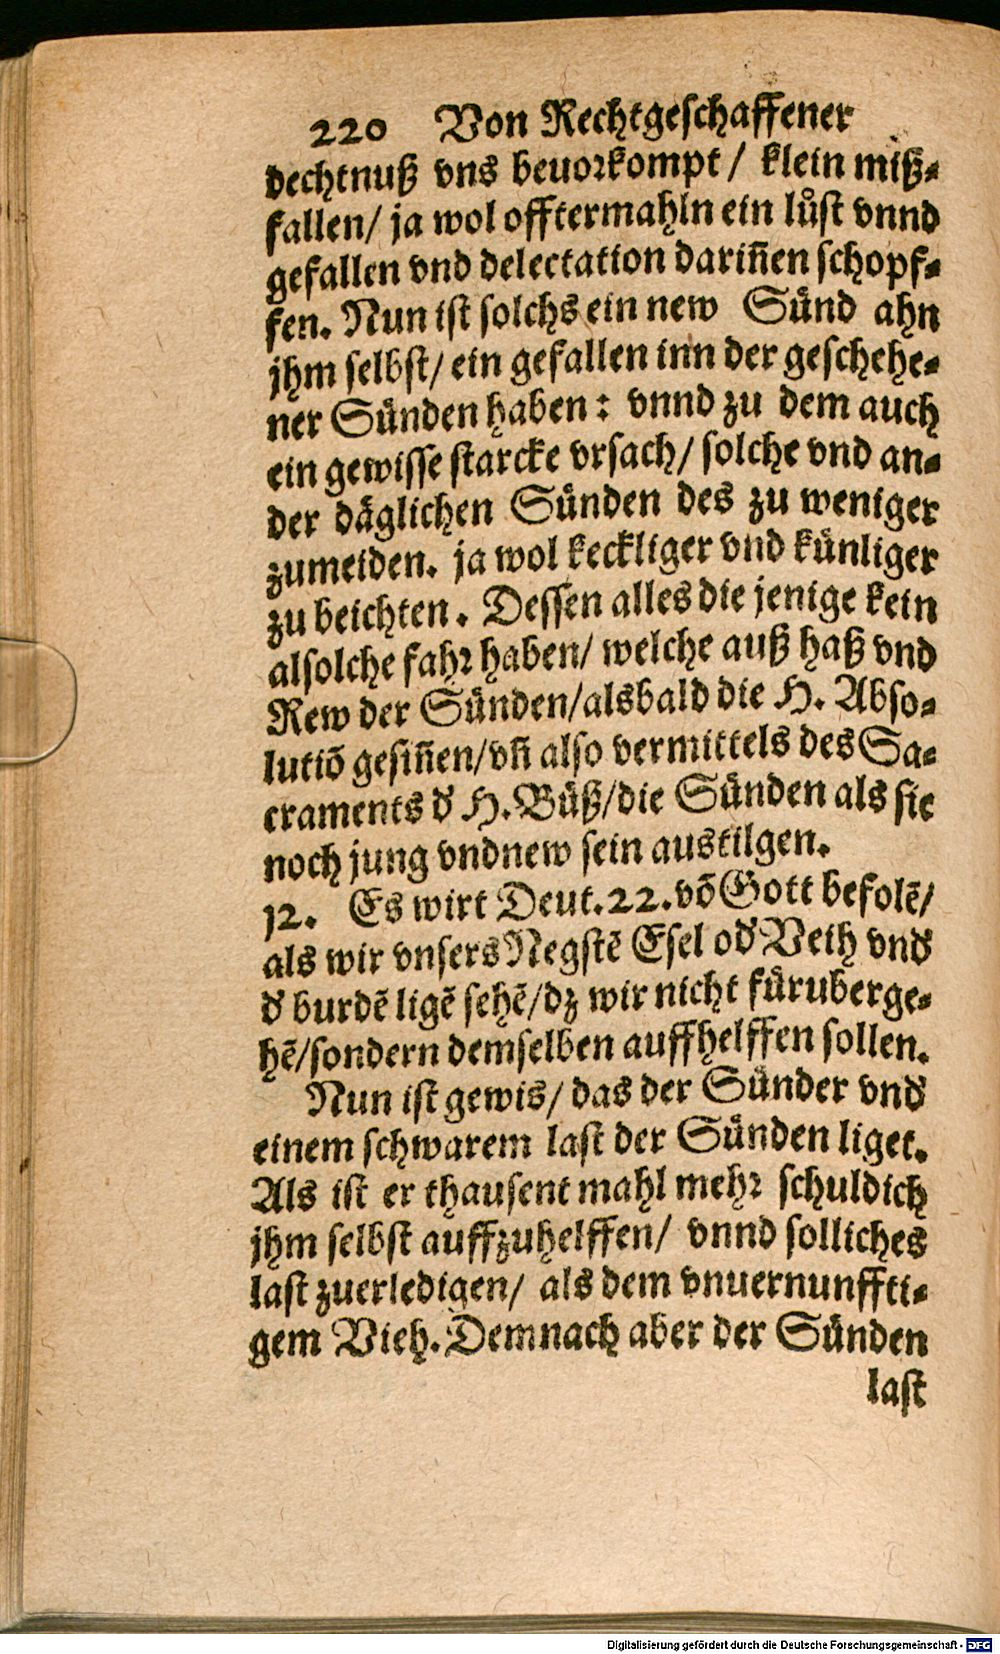 220 Von Rechtgeschaffener
dechtnuß vns beuorkompt / klein miß-
fallen/ ja wol offtermahln ein lůst vnnd
gefallen vnd delectation dariñen schopf-
fen. Nun ist solchs ein new Sünd ahn
jhm selbst/ ein gefallen inn der geschehe-
ner Sünden haben: vnnd zu dem auch
ein gewisse starcke vrsach/ solche vnd an-
der däglichen Sünden des zu weniger
zumeiden. ja wol keckliger vnd künliger
zu beichten. Dessen alles die jenige kein
alsolche fahr haben/ welche auß haß vnd
Rew der Sünden/alsbald die H. Abso-
lutiō gesiñen/vñ also vermittels des Sa-
craments d' H. Büß/die Sünden als sie
noch jung vndnew sein austilgen.
12. Es wirt Deut. 22. vō Gott befolē/
als wir vnsers Negstē Esel od' Veih vnd'
d' burdē ligē sehē/dz wir nicht füruberge-
hē/sondern demselben auffhelffen sollen.
Nun ist gewis/ das der Sünder vnd'
einem schwarem last der Sünden liget.
Als ist er thausent mahl mehr schuldich
jhm selbst auffzuhelffen/ vnnd solliches
last zuerledigen/ als dem vnuernunffti-
gem Vieh. Demnach aber der Sünden
last
Digitalisierung gefördert durch die Deutsche Forschungsgemeinschaft - DFG